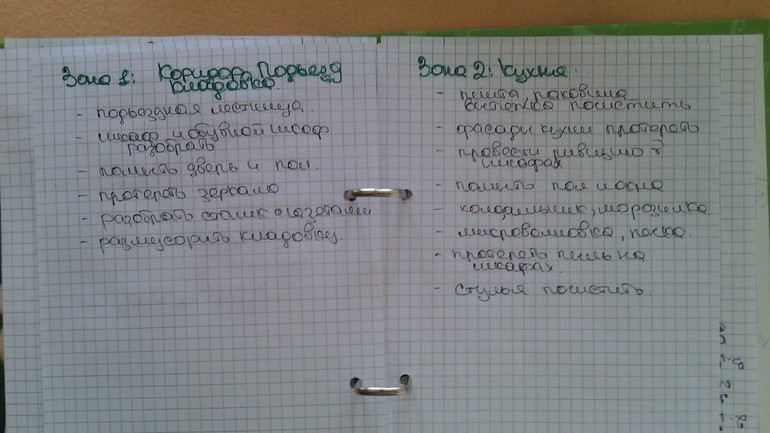 Зона 1: Коридор, Подъезд
кладовка
- подъездная лестница.
- шкаф и обувной шкаф
разобрать
- помыть дверь и пол.
- протереть зеркало
- разобрать столик с газетами
- размусорить кладовку
Зона 2: Кухня.
- плита раковина
вытяжка почистить
- фасады кухни протереть
- провести ревизию в
шкафах
- помыть пол и окна
холодильник, морозилка
- микроволновка, полка.
- протереть пыль на
шкафах.
- стулья почистить